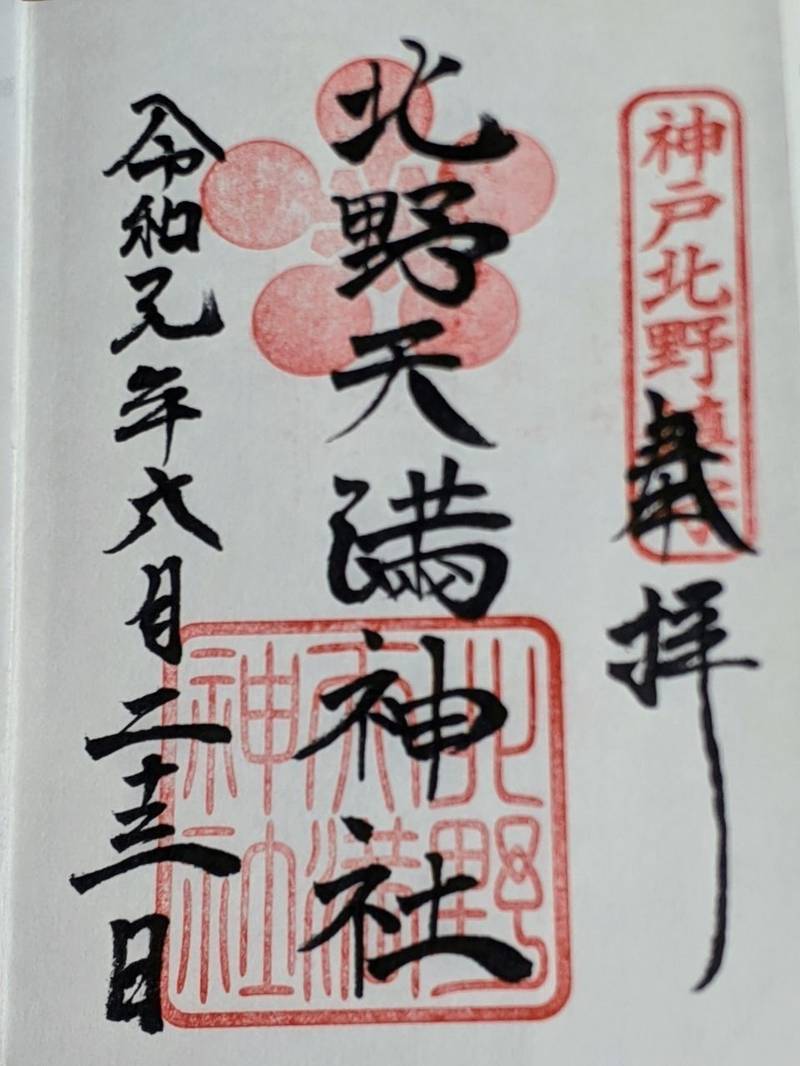 神戸北野鎮守
奉拝
北野天満神社
北野
天満
神社
令和元年六月二十三日